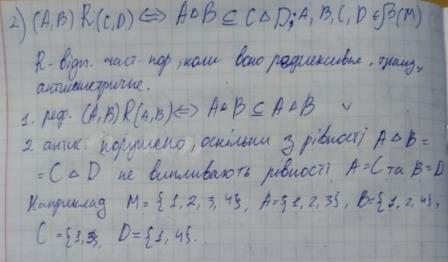 2) (A,B) R (C,D) ⟺ A△B ⊆ C△D; A,B,C,D ∈ β(M)
R - відн. част. пор, коли воно рефлексивне, транз,
антисиметричне.
1. реф. (A,B)R(A,B) ⟺ A△B ⊆ A△B ✓
2 антис. порушено, оскільки з рівності A△B =
= C△D не випливають рівності A=C та B=D
Наприклад M = {1,2,3,4}, A={1,2,3}, B={1,2,4},
C = {1,3}, D={1,4}.